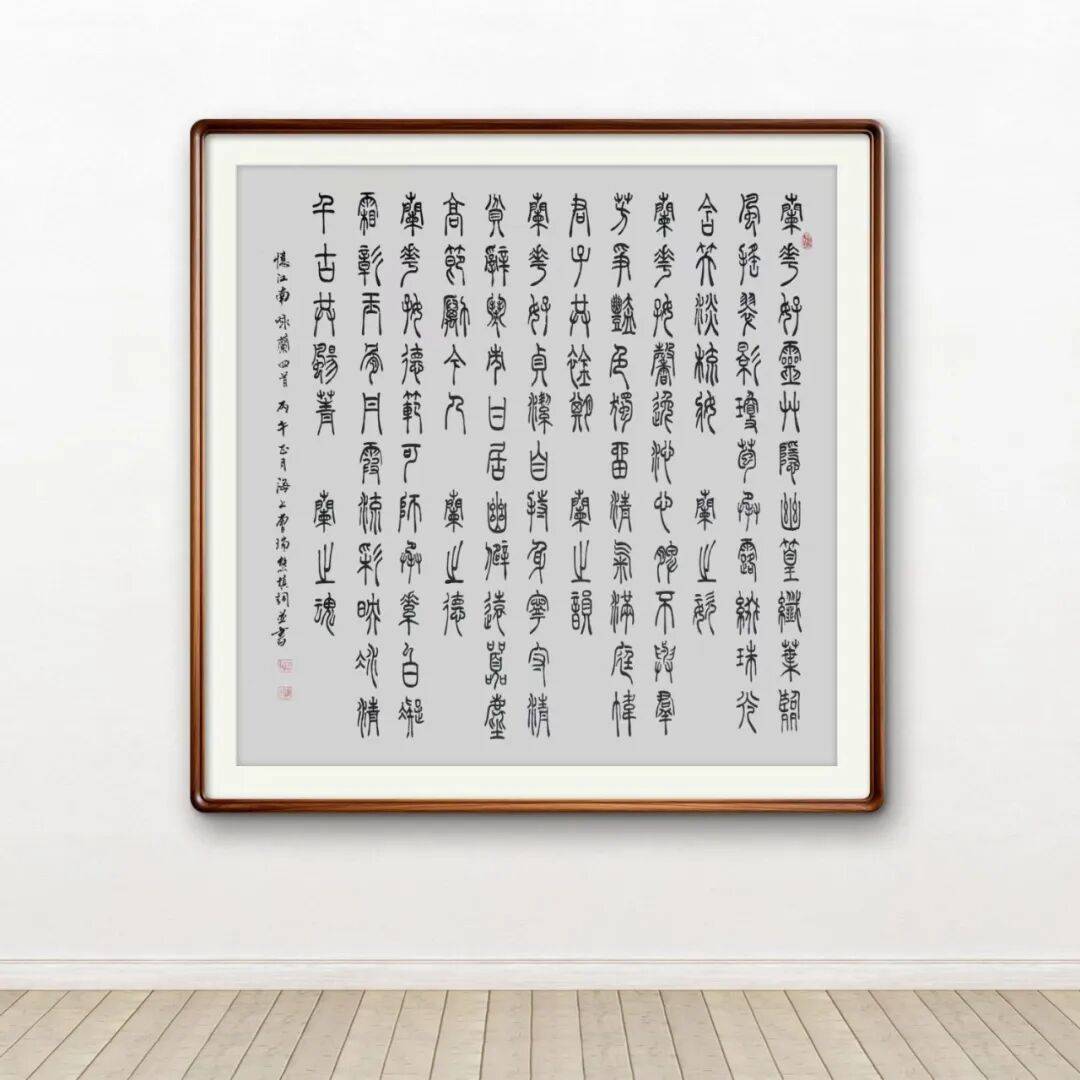 蘭花好靈艸隱幽篁纖葉
風搖翠影瓊苞承露綴珠光
含笑淡梳妝 蘭之
蘭花好馨逸沁心脾不與群
芳爭豔色獨留清氣滿庭幃
君子共 蘭之韻
蘭花好貞潔自持身寧守清
貧辭鬧市甘居幽僻遠囂塵
高節勵今人 蘭之德
蘭花好德範可師承素色凝
霜彰玉 丹霞流彩映冰清
千古共 菁 蘭之魂
憶江南 詠蘭四首 丙午正月海上曹瑞 撰詞並書